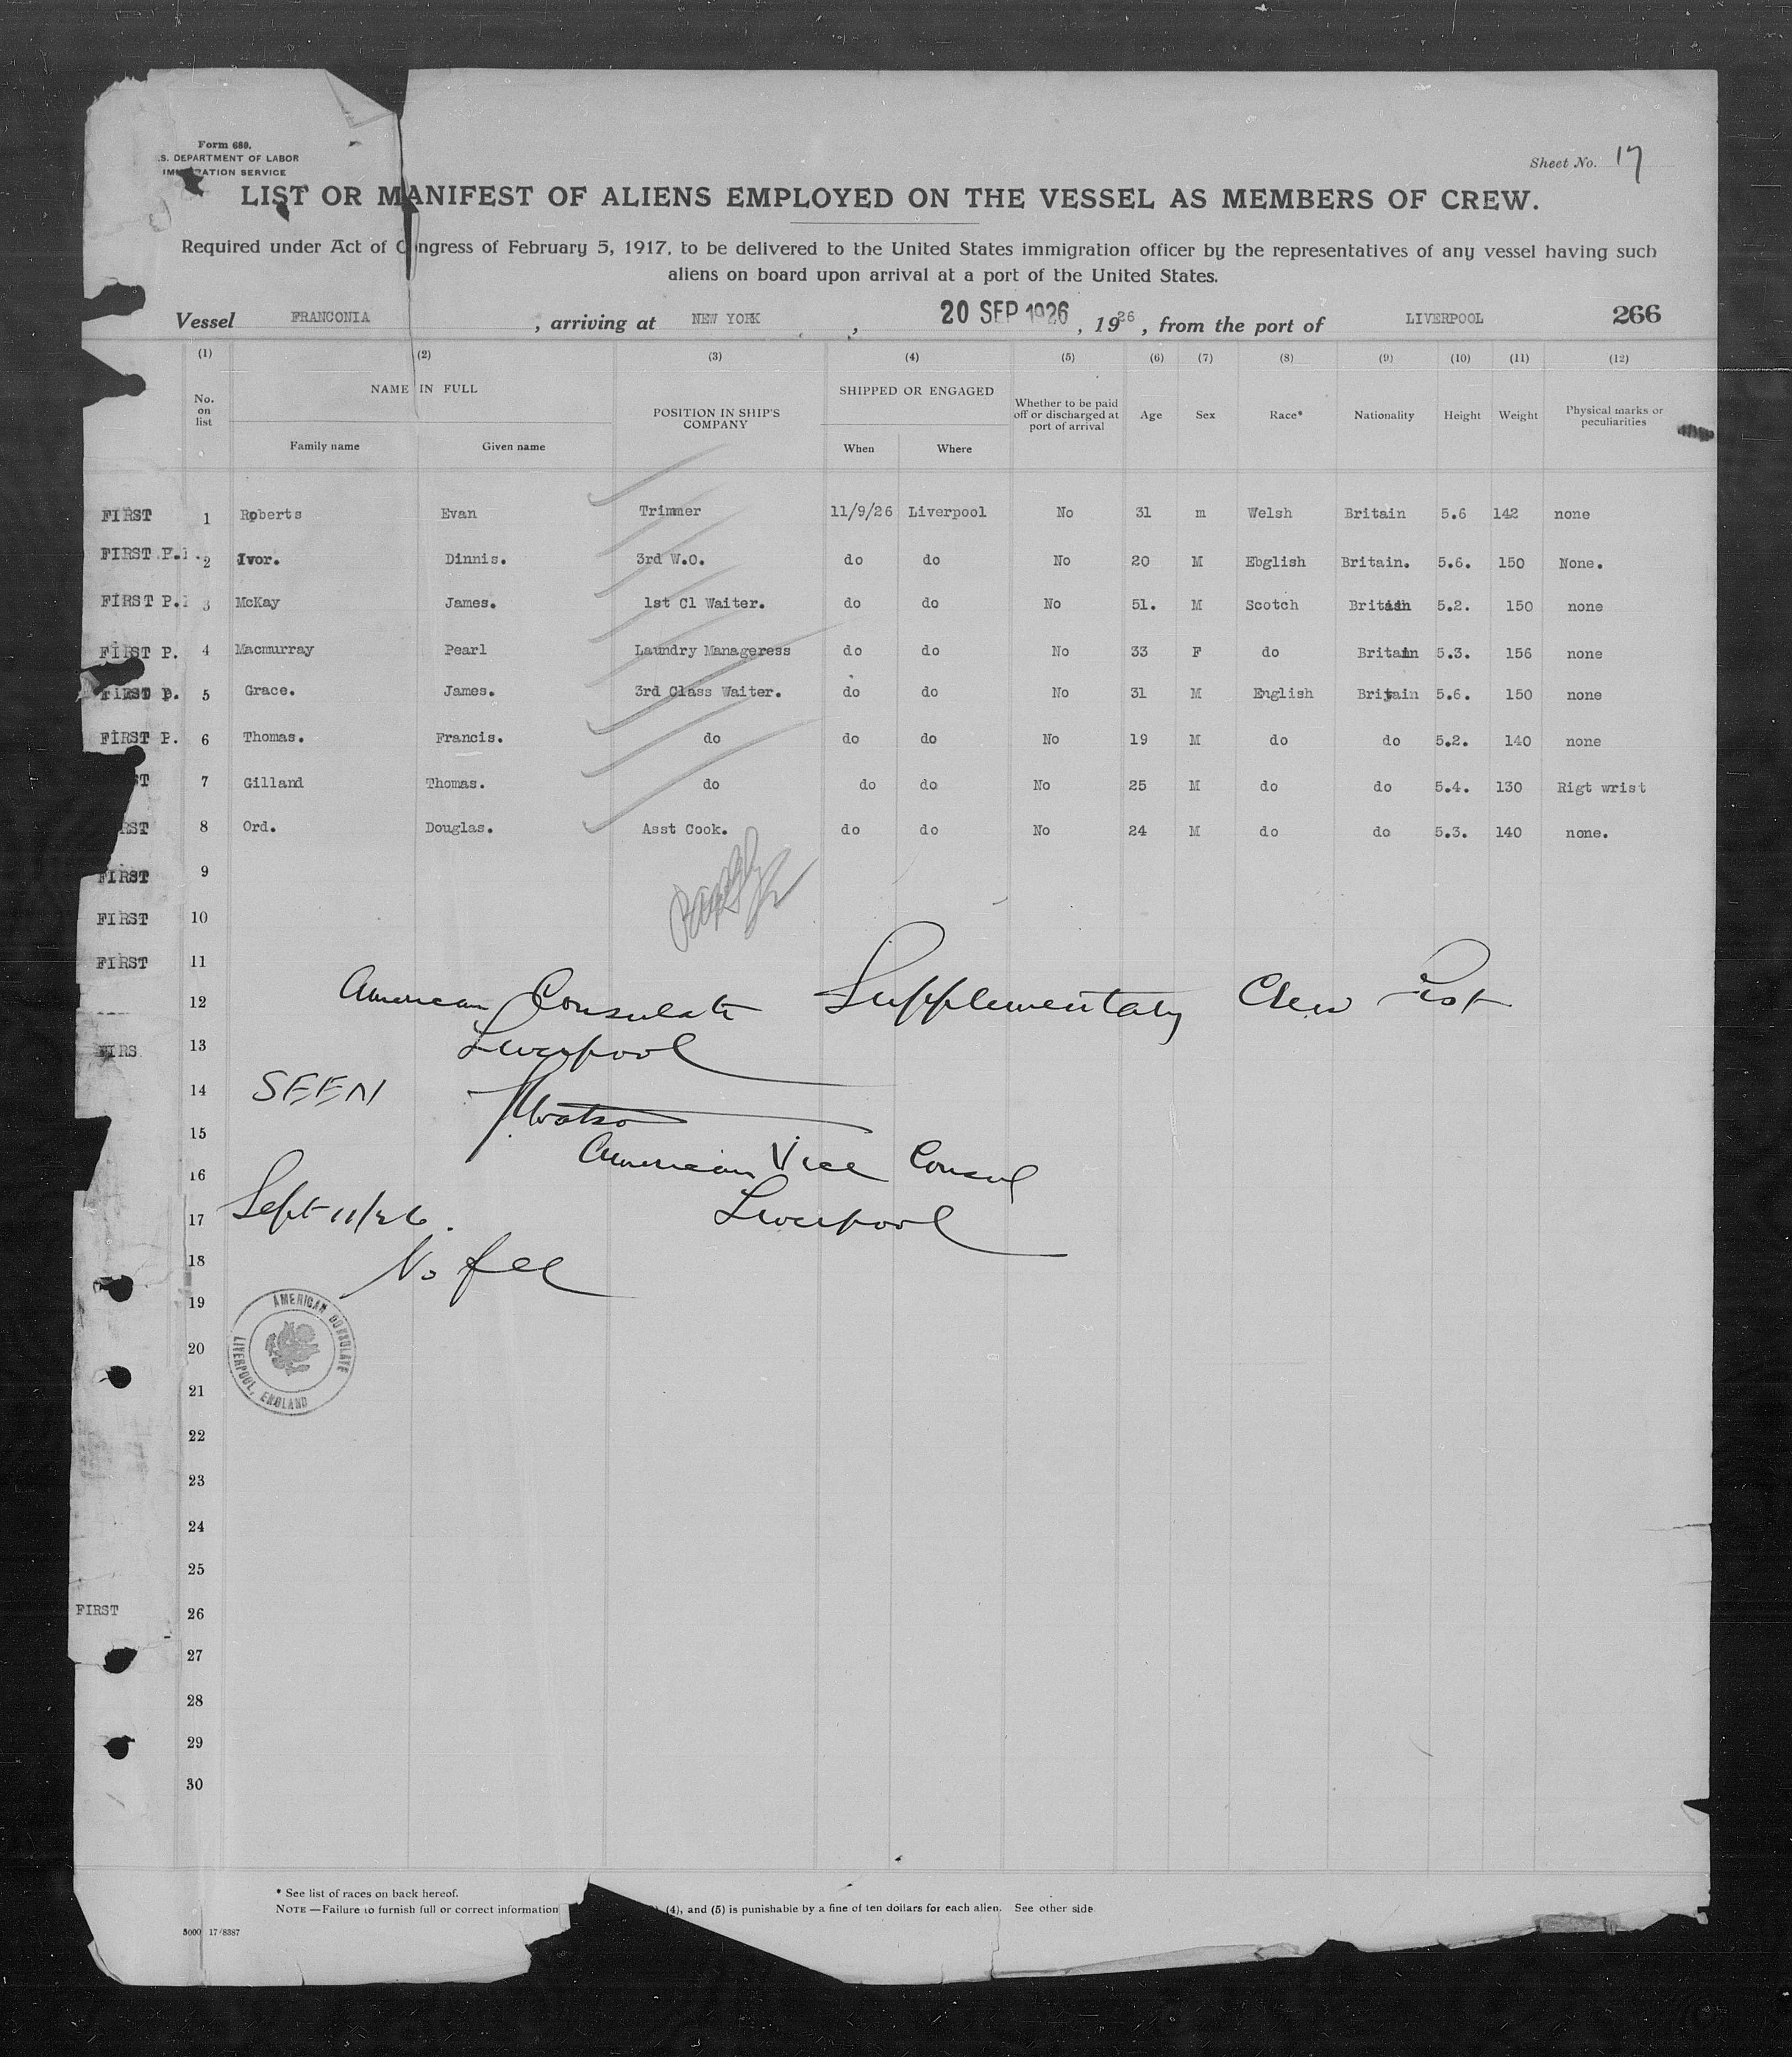 Form 680.
.S. DEPARTMENT OF LABOR
IMMIGRATION SERVICE
Sheet No. 17
LIST OR MANIFEST OF ALIENS EMPLOYED ON THE VESSEL AS MEMBERS OF CREW.
Required under Act of Congress of February 5, 1917, to be delivered to the United States immigration officer by the representatives of any vessel having such
aliens on board upon arrival at a port of the United States.
Vessel FRANCONIA , arriving at NEW YORK , 20 SEP 1926 , 1926 , from the port of LIVERPOOL 266
(1) (2) (3) (4) (5) (6) (7) (8) (9) (10) (11) (12)
No. on list NAME IN FULL Family name Given name POSITION IN SHIP'S COMPANY SHIPPED OR ENGAGED When Where Whether to be paid off or discharged at port of arrival Age Sex Race* Nationality Height Weight Physical marks or peculiarities
FIRST 1 Roberts Evan Trimmer 11/9/26 Liverpool No 31 m Welsh Britain 5.6 142 none
FIRST P. 2 Ivor. Dinnis. 3rd W.O. do do No 20 M Ebglish Britain. 5.6. 150 None.
FIRST P. 3 McKay James. 1st Cl Waiter. do do No 51. M Scotch British 5.2. 150 none
FIRST P. 4 Macmurray Pearl Laundry Manageress do do No 33 F do Britain 5.3. 156 none
FIRST P. 5 Grace. James. 3rd Class Waiter. do do No 31 M English Britain 5.6. 150 none
FIRST P. 6 Thomas. Francis. do do do No 19 M do do 5.2. 140 none
ST 7 Gilland Thomas. do do do No 25 M do do 5.4. 130 Rigt wrist
RST 8 Ord. Douglas. Asst Cook. do do No 24 M do do 5.3. 140 none.
FIRST 9
FIRST 10
FIRST 11
12 American Consulate Supplementary Crew List
FIRS 13 Liverpool
14 SEEN
15
16 American Vice Consul
17 Sept 11/26. Liverpool
18 No fee
19
AMERICAN CONSULATE
LIVERPOOL, ENGLAND
20
21
22
23
24
25
FIRST 26
27
28
29
30
* See list of races on back hereof.
NOTE —Failure to furnish full or correct information (4), and (5) is punishable by a fine of ten dollars for each alien. See other side
5000 17/8387